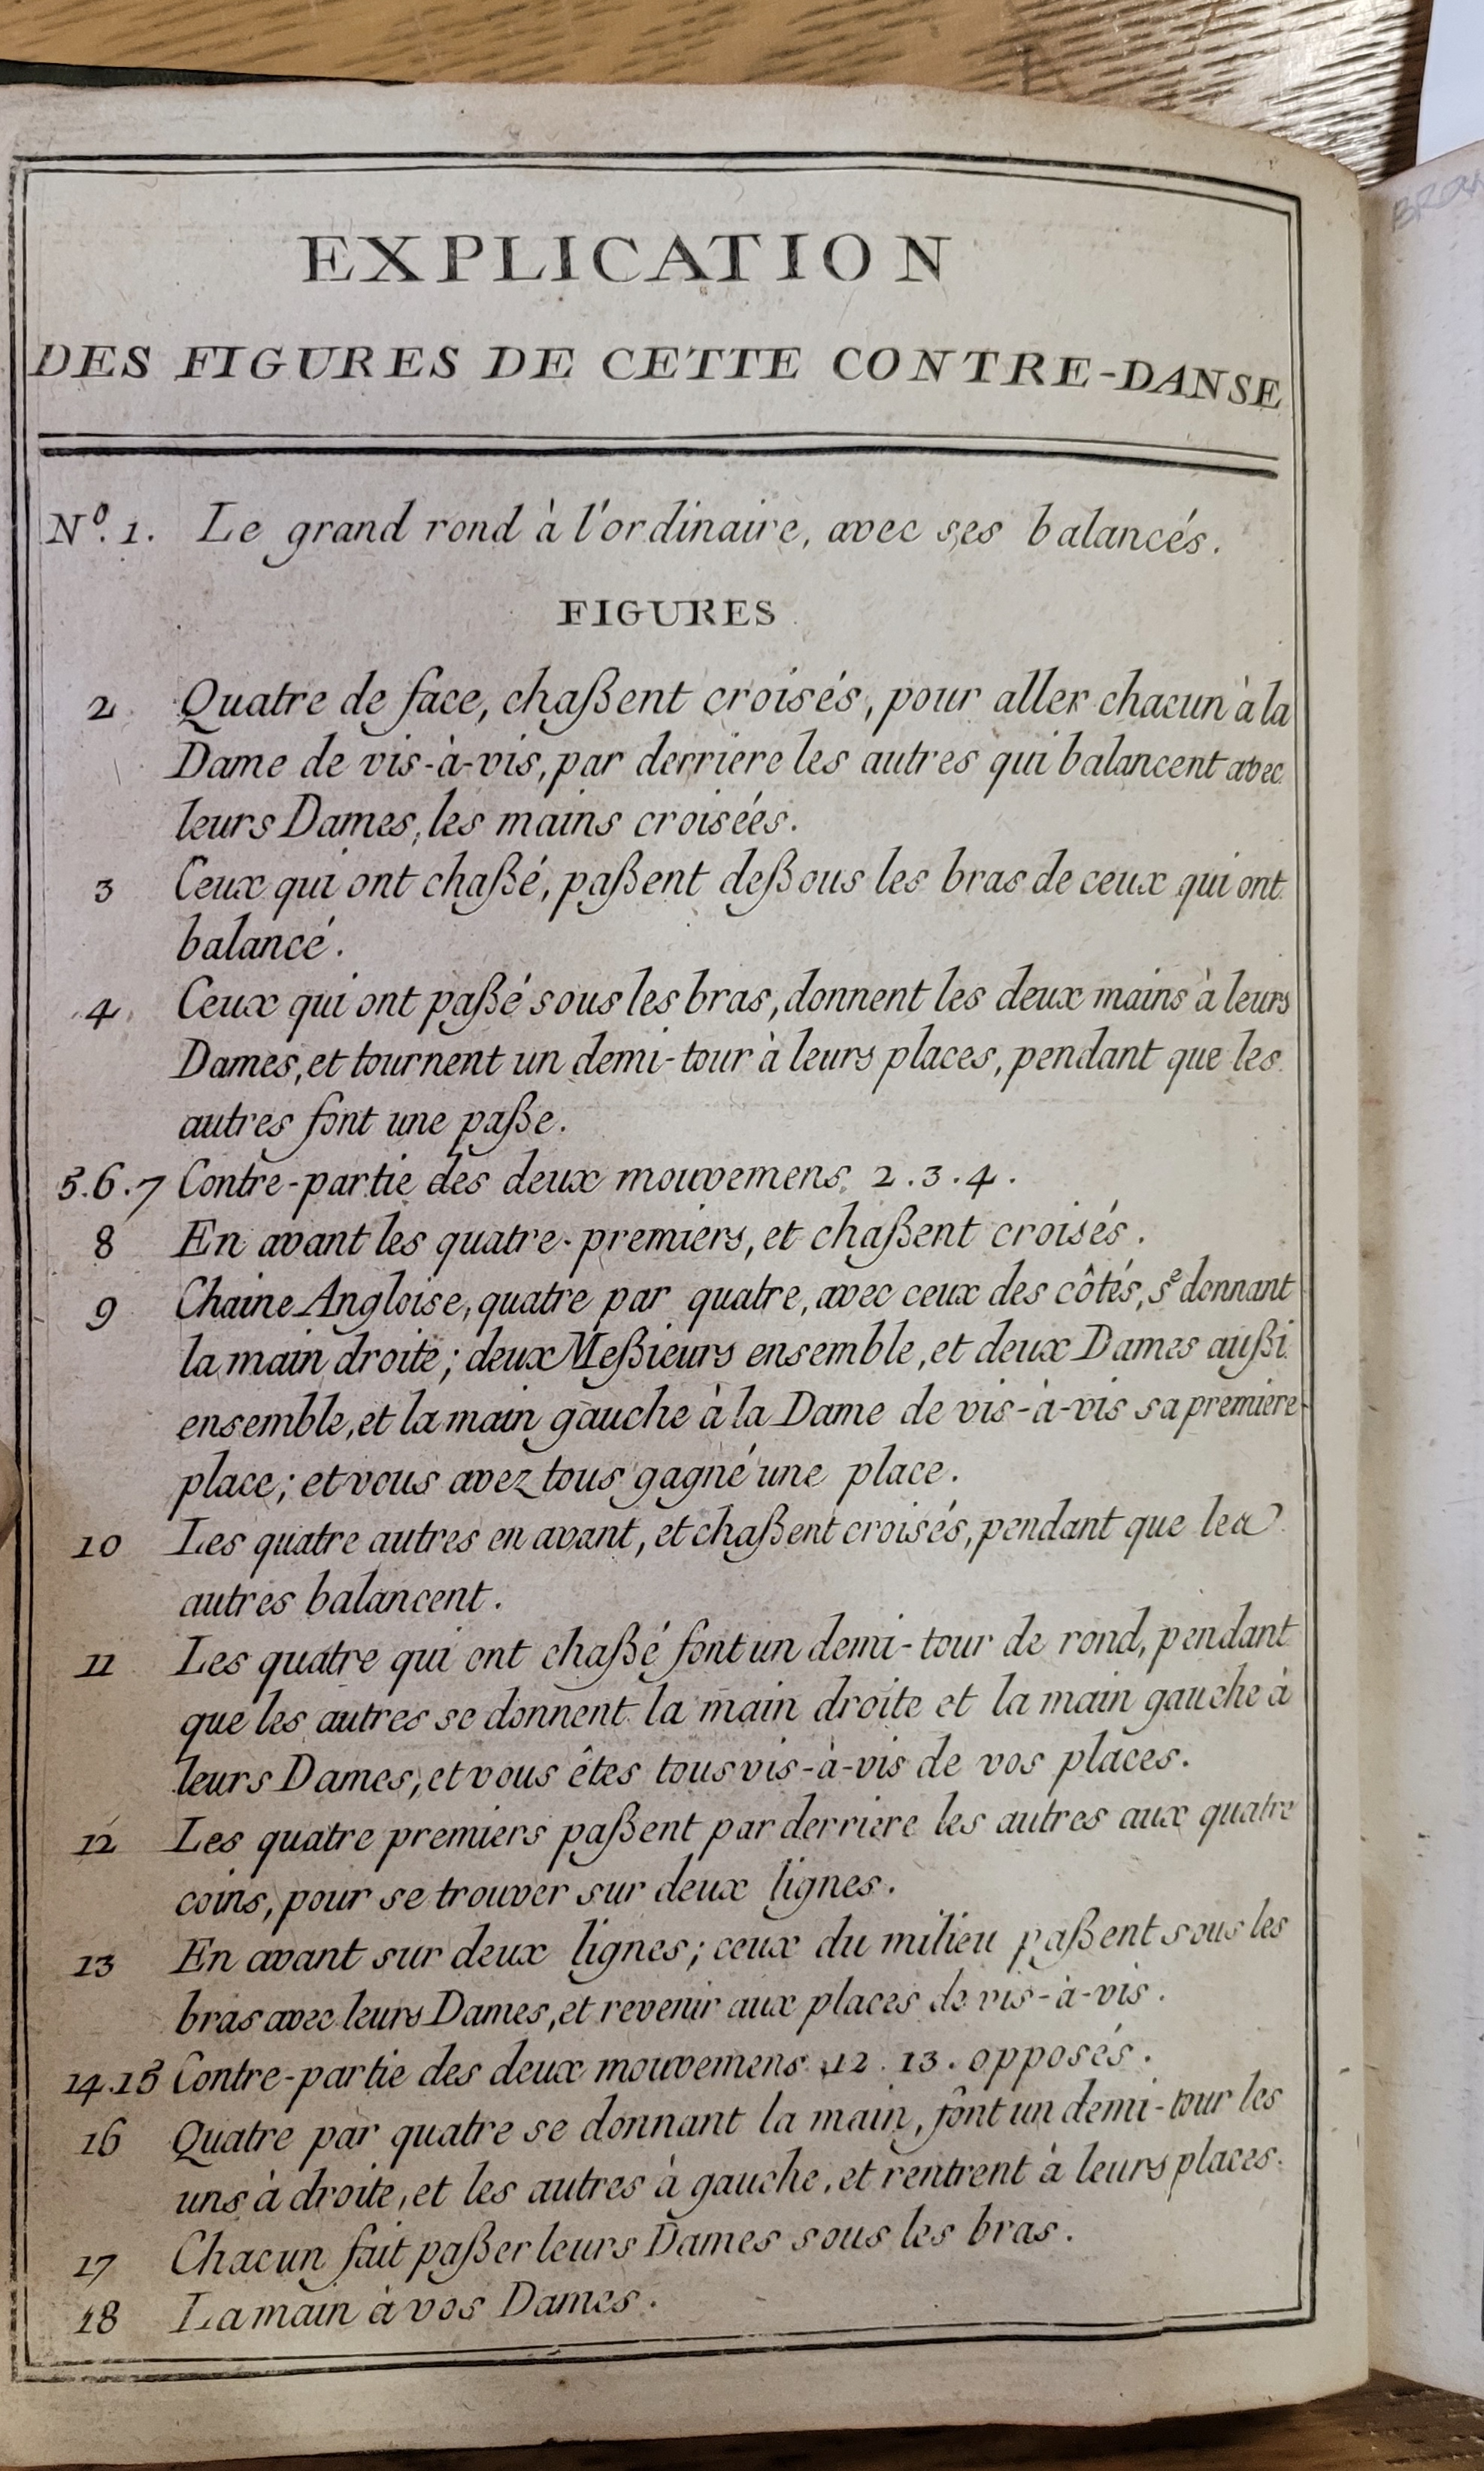 EXPLICATION
DES FIGURES DE CETTE CONTRE-DANSE
Nº. 1. Le grand rond à l'ordinaire, avec ses balancés.
FIGURES
2 Quatre de face, chaßent croisés, pour aller chacun à la
Dame de vis-à-vis, par derriere les autres qui balancent avec
leurs Dames, les mains croisées.
3 Ceux qui ont chaßé, paßent deßous les bras de ceux qui ont
balancé.
4 Ceux qui ont paßé sous les bras, donnent les deux mains à leurs
Dames, et tournent un demi-tour à leurs places, pendant que les
autres font une paße.
5.6.7 Contre-partie des deux mouvemens 2.3.4.
8 En avant les quatre-premiers, et chaßent croisés.
9 Chaine Angloise, quatre par quatre, avec ceux des côtés, se donnant
la main droite; deux Meßieurs ensemble, et deux Dames außi
ensemble, et la main gauche à la Dame de vis-à-vis sa premiere
place; et vous avez tous gagné une place.
10 Les quatre autres en avant, et chaßent croisés, pendant que les
autres balancent.
11 Les quatre qui ont chaßé font un demi-tour de rond, pendant
que les autres se donnent la main droite et la main gauche à
leurs Dames, et vous êtes tous vis-à-vis de vos places.
12 Les quatre premiers paßent par derriere les autres aux quatre
coins, pour se trouver sur deux lignes.
13 En avant sur deux lignes; ceux du milieu paßent sous les
bras avec leurs Dames, et revenir aux places de vis-à-vis.
14.15 Contre-partie des deux mouvemens 12.13. opposés.
16 Quatre par quatre se donnant la main, font un demi-tour les
uns à droite, et les autres à gauche, et rentrent à leurs places.
17 Chacun fait paßer leurs Dames sous les bras.
18 La main à vos Dames.